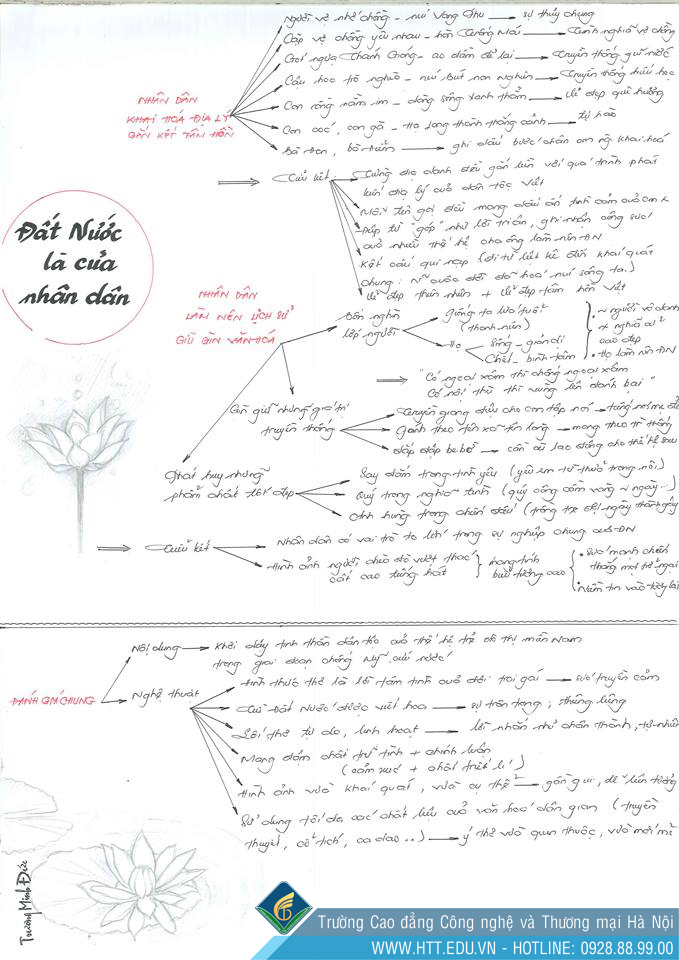 Người vợ nhớ chồng - núi Vọng Phu → sự thủy chung
Cặp vợ chồng yêu nhau - hòn Trống Mái → tình nghĩa vợ chồng
Gót ngựa Thánh Gióng - ao đầm để lại → truyền thống giữ nước
Cậu học trò nghèo - núi Bút non Nghiên → truyền thống hiếu học
Con rồng nằm im - dòng sông xanh thẳm → vẻ đẹp quê hương
Con cóc, con gà - Hạ Long thành thắng cảnh → tự hào
Bà Đen, bà Điểm → ghi dấu bước chân
NHÂN DÂN
KHAI HOÁ ĐỊA LÝ
GẮN KẾT TÂM HỒN
⇒ Tiểu kết
Những địa danh đều gắn liền với quá trình phát
kiến địa lý của dân tộc Việt
Mỗi tên gọi đều mang dấu ấn tình cảm của
Điệp từ "góp" như lời tri ân, ghi nhận công sức
của nhiều thế hệ cha ông làm nên ĐN
Kết cấu qui nạp (đi từ liệt kê đến khái quát
chung: đã hoá núi sông ta.)
Vẻ đẹp thiên nhiên + vẻ đẹp tâm hồn Việt
Đất Nước
là của
nhân dân
NHÂN DÂN
LÀM NÊN LỊCH SỬ
GIỮ GÌN VĂN HOÁ
Bốn nghìn
lớp người
giống ta lứa tuổi
(thanh niên)
Họ
Sống - giản dị
Chết - bình tâm
người vô danh
cao đẹp
Họ làm nên ĐN
⇒ "Có ngoại xâm thì chống ngoại xâm
Có nội thù thì vùng lên đánh bại"
Gìn giữ những giá trị
truyền thống
Truyền giọng điệu cho con tập nói →
Gánh theo tên xã tên làng → mang theo
đắp đập be bờ →
Phát huy những
phẩm chất tốt đẹp
Say đắm trong tình yêu (yêu em từ thuở trong nôi)
Quý trọng nghĩa tình (quý công cầm vàng ngày..)
Anh hùng trong chiến đấu (trồng tre đợi ngày thành gậy)
⇒ Tiểu kết
Nhân dân có vai trò to lớn trong sự nghiệp chung của ĐN
Hình ảnh người chèo đò vượt thác
cất cao tiếng hát
mang tính
biểu tượng cao
Sức mạnh chiến
thắng mọi trở ngại
Niềm tin vào tương lai
ĐÁNH GIÁ CHUNG
Nội dung → Khơi dậy tinh thần dân tộc của thế hệ trẻ đô thị miền Nam
trong giai đoạn chống Mỹ cứu nước
Nghệ thuật
Hình thức thơ là lời tâm tình của đôi trai gái → sức truyền cảm
Từ Đất Nước được viết hoa → sự trân trọng, thiêng liêng
Lối thơ tự do, linh hoạt → lời nhắn nhủ chân thành, tự nhiên
Mang đậm chất trữ tình + chính luận
(cảm xúc + chất triết lí)
Hình ảnh vừa khái quát, vừa cụ thể → gần gũi, dễ liên tưởng
Sử dụng tối đa các chất liệu của văn hoá dân gian (truyền
thuyết, cổ tích, ca dao..) → ý thơ vừa quen thuộc, vừa mới mẻ
Trương Minh Đức
Trường Cao đẳng Công nghệ và Thương mại Hà Nội
WWW.HTT.EDU.VN - HOTLINE: 0928.88.99.00